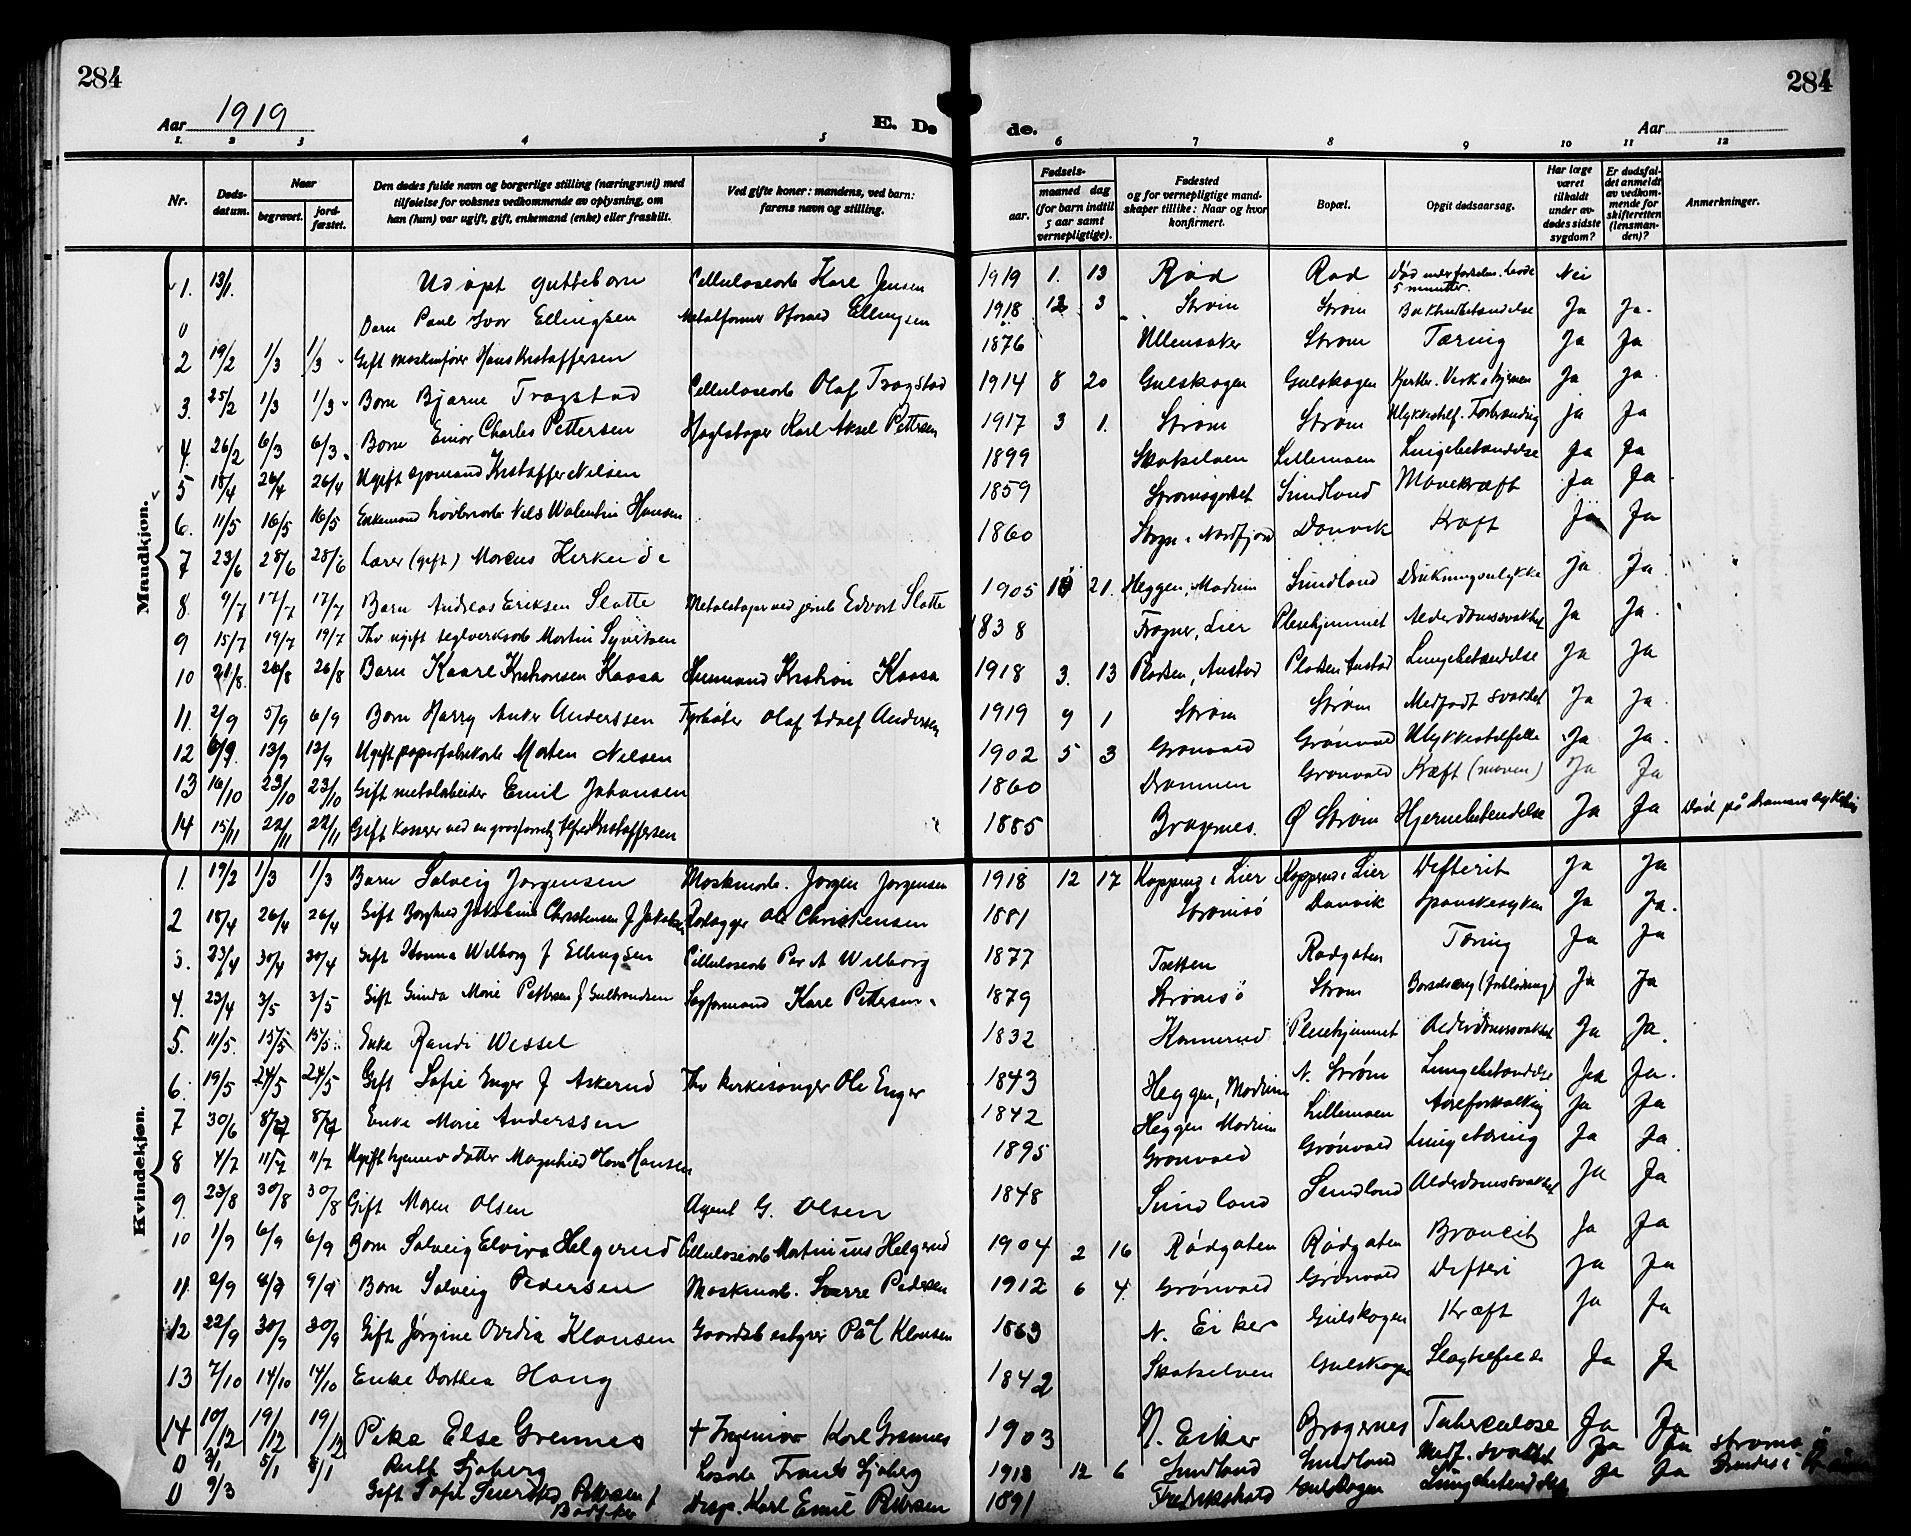 284
284
Aar 1919
E. Dø
de.
Aar
1. 2 3 4 5 6 7 8 9 10 11 12
Nr.
Døds-datum.
Naar
begravet.
jord-fæstet.
Den dødes fulde navn og borgerlige stilling (næringsvei) med tilføielse for voksnes vedkommende av oplysning, om han (hun) var ugift, gift, enkemand (enke) eller fraskilt.
Ved gifte koner: mandens, ved barn: farens navn og stilling.
Fødsels-
aar.
maaned dag
(for barn indtil 5 aar samt vernepligtige).
Fødested og for vernepligtige mandskaper tillike: Naar og hvor konfirmert.
Bopæl.
Opgit dødsaarsag.
Har læge været tilkaldt under avdødes sidste sygdom?
Er dødsfaldet anmeldt av vedkommende for skifteretten (lensmanden)?
Anmerkninger.
Mandkjøn.
1. 13/1. Udøpt guttebarn Cellulosearb Karl Jensen 1919 1. 13 Rød Rød 5 minutter. Nei
0 Barn Paul Ivar Ellingsen Ellingsen 1918 12 3 Strøm Strøm Ja Ja.
2 19/2 1/3 1/3 Gift Hans Kristoffersen 1876 Ullensaker Strøm Tæring Ja Ja
3. 25/2 1/3 1/3 Barn Bjarne Trogstad Cellulosearb Olaf Trogstad 1914 8 20 Gulskogen Gulskogen Ja Ja.
4. 26/2 6/3 6/3 Barn Einar Charles Pettersen Karl Aksel Pettersen 1917 3 1. Strøm Strøm Ja Ja
5 18/4 26/4 26/4 Ugift sjømand Kristoffer Nilsen 1899 Skotselven Lillemoen Lungebetændelse Ja Ja
6. 11/5 16/5 16/5 Enkemand Nils Walentin Hansen 1859 Strømsgodset Sundland Mavekræft Ja Ja
7 23/6 28/6 28/6 Lærer (gift) Marcus Kirkeide 1860 Stryn i Nordfjord Danvik Kræft Ja Ja
8. 9/7 17/7 17/7 Barn Andreas Eriksen Slatte Edvart Slatte 1905 10 21. Heggen, Modum Sundland Drukningsulykke Ja Ja.
9 15/7 19/7 19/7 Fhv ugift teglverksarb Martin Syvertsen 1838 Frogner, Lier Pleiehjemmet Alderdomssvakhet Ja Ja.
10 21/8. 26/8 26/8 Barn Kaare Kristiansen Kaasa Kristian Kaasa 1918 3. 13 Pladsen, Austad Pladsen Austad Lungebetændelse Ja Ja
11. 2/9 5/9 6/9 Barn Harry Anker Anderssen Fyrbøter Olaf Adolf Anderssen 1919 9 1 Strøm Strøm Medfødt svakhet Ja Ja.
12 6/9. 13/9 13/9 Ugift papirfabrikarb Morten Nilsen 1902 5 3 Grønvold Grønvold Ulykkestilfelle Ja Ja.
13 16/10 23/10 23/10 Gift metalarbeider Emil Johansen 1860 Drammen Grønvold Kræft (maven) Ja Ja
14 15/11 22/11 22/11 Gift Kristoffersen 1885 Bragernes. Ø Strøm Hjernebetendelse Ja Ja Død på Drammens sykehus
Kvindekjøn.
1. 19/2 1/3 1/3 Barn Solveig Jørgensen Maskinarb. Jørgen Jørgensen 1918 12 17 Kopperud i Lier Kopperud i Lier Difterit Ja Ja
2 18/4 26/4 26/4 Gift Borghild Jakobine Christensen f Jakobsen Ole Christensen 1881 Strømsø Danvik Spanskesyken Ja Ja.
3. 23/4 30/4 30/4 Gift Wilborg f Ellingsen Cellulosearb Per A Wilborg 1877 Tretten Rødgaten Tæring Ja Ja
4. 23/4 3/5 3/5 Gift Gunda Marie Pettersen f Gulbrandsen Sagformand Karl Pettersen 1879 Strømsø Strøm Barselseng (forblødning) Ja Ja
5. 11/5. 15/5 15/5 Enke Randi Wessel 1832 Konnerud Pleiehjemmet Alderdomssvakhet Ja Ja.
6. 19/5 24/5 24/5 Gift Sofie Enger f Askerud Fhv kirkesanger Ole Enger 1843 Heggen, Modum N. Strøm Lungebetændelse Ja Ja.
7 30/6 8/7 8/7 Enke Marie Anderssen 1842 Heggen Modum Lillemoen Aareforkalkning Ja Ja
8 4/7 11/7 11/7 Ugift hjemmev datter Magnhild Hansen 1895 Grønvold Grønvold Lungetæring Ja Ja
9. 23/8 30/8 30/8 Gift Maren Olsen Agent G. Olsen 1848 Sundland Sundland Alderdomssvakhet Ja Ja
10 1/9 6/9 6/9 Barn Solveig Elvira Helgerud Cellulosearb Martinius Helgerud 1904 2 16 Rødgaten Rødgaten Broncit Ja Ja
11 2/9 8/9 9/9 Barn Solveig Pedersen Maskinarb. Sverre Pedersen 1912 6 4. Grønvold Grønvold Difteri Ja Ja
12 22/9 30/9 30/9 Gift Jørgine Ovidia Klausen Gaardsbestyrer Pål Klausen 1863 N. Eiker Gulskogen Kræft Ja Ja
13 7/10 14/10 14/10 Enke Dorthea Haug 1842 Skotselven Gulskogen Slagtilfelde Ja Ja
14 10/12 19/12 19/12 Pike Else Grennes + Ingeniør Karl Grennes 1903 N. Eiker Bragernes Tuberculose Ja Ja
0 3/1 5/1 5/1 Ruth Sjøberg Løsarb Frants Sjøberg 1918 12 6 Sundland Sundland Medf. svakhet Ja Ja Strømsø
0 9/3 Gift Sofie Pettersen f Disp. Karl Emil Pettersen 1891 Fredrikshald Gulskogen Lungebetendelse Ja Ja